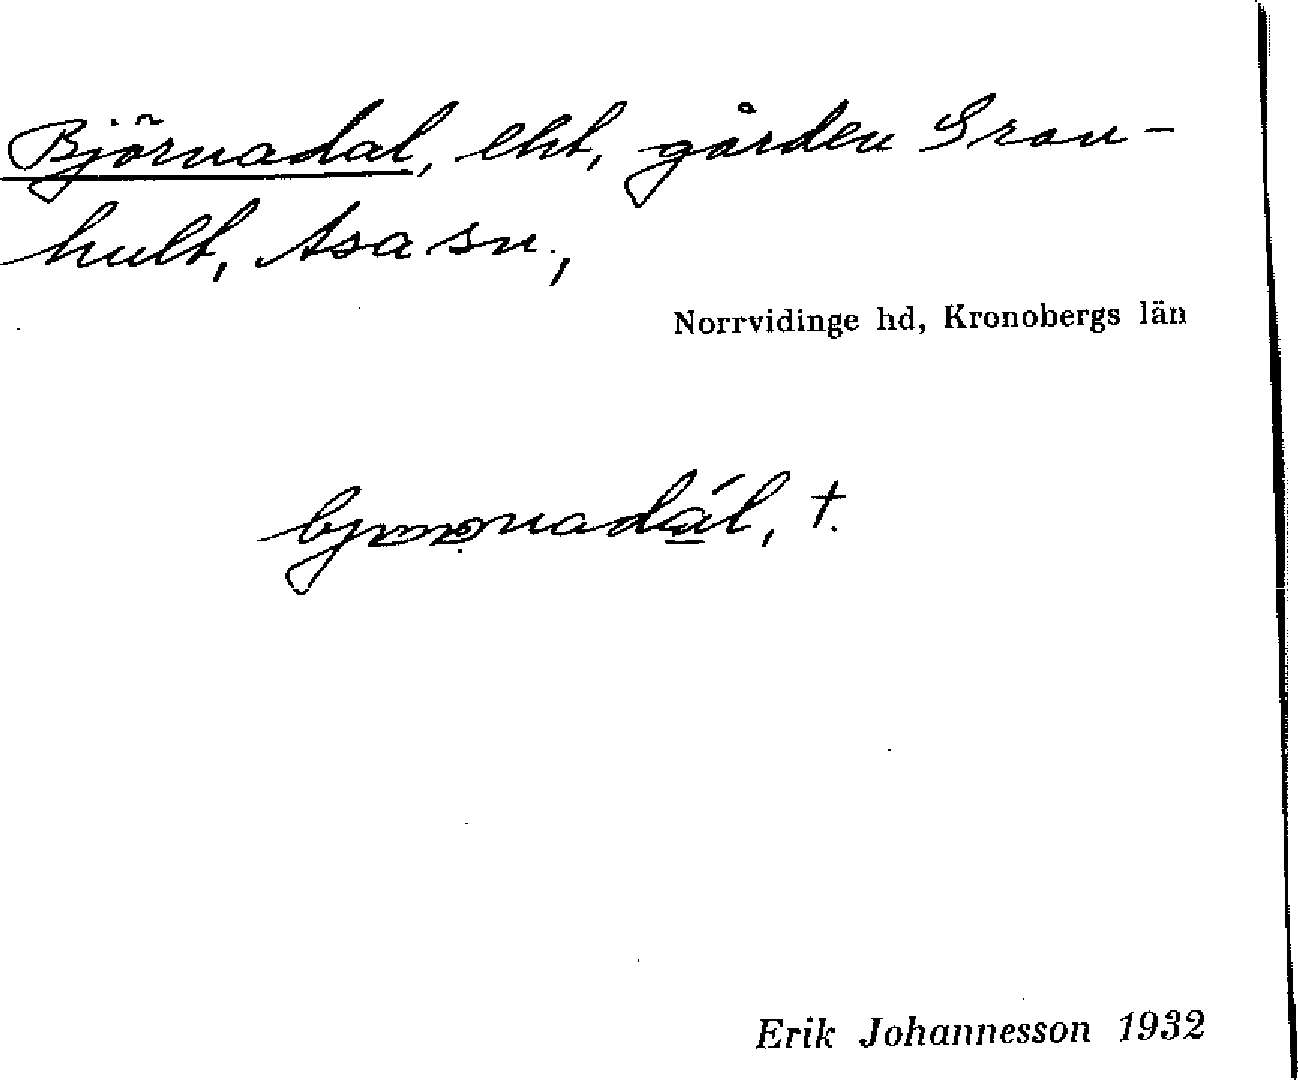 Björnadal, lht, gården Gran-
hult, Asa sn.,
Norrvidinge hd, Kronobergs län
Erik Johannesson 1932